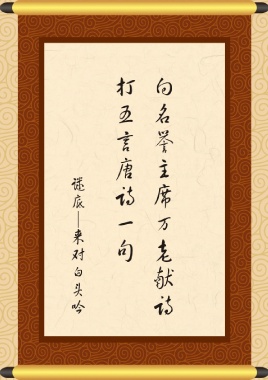 向名誉主席万老献诗
打五言唐诗一句
谜底——来对白头吟